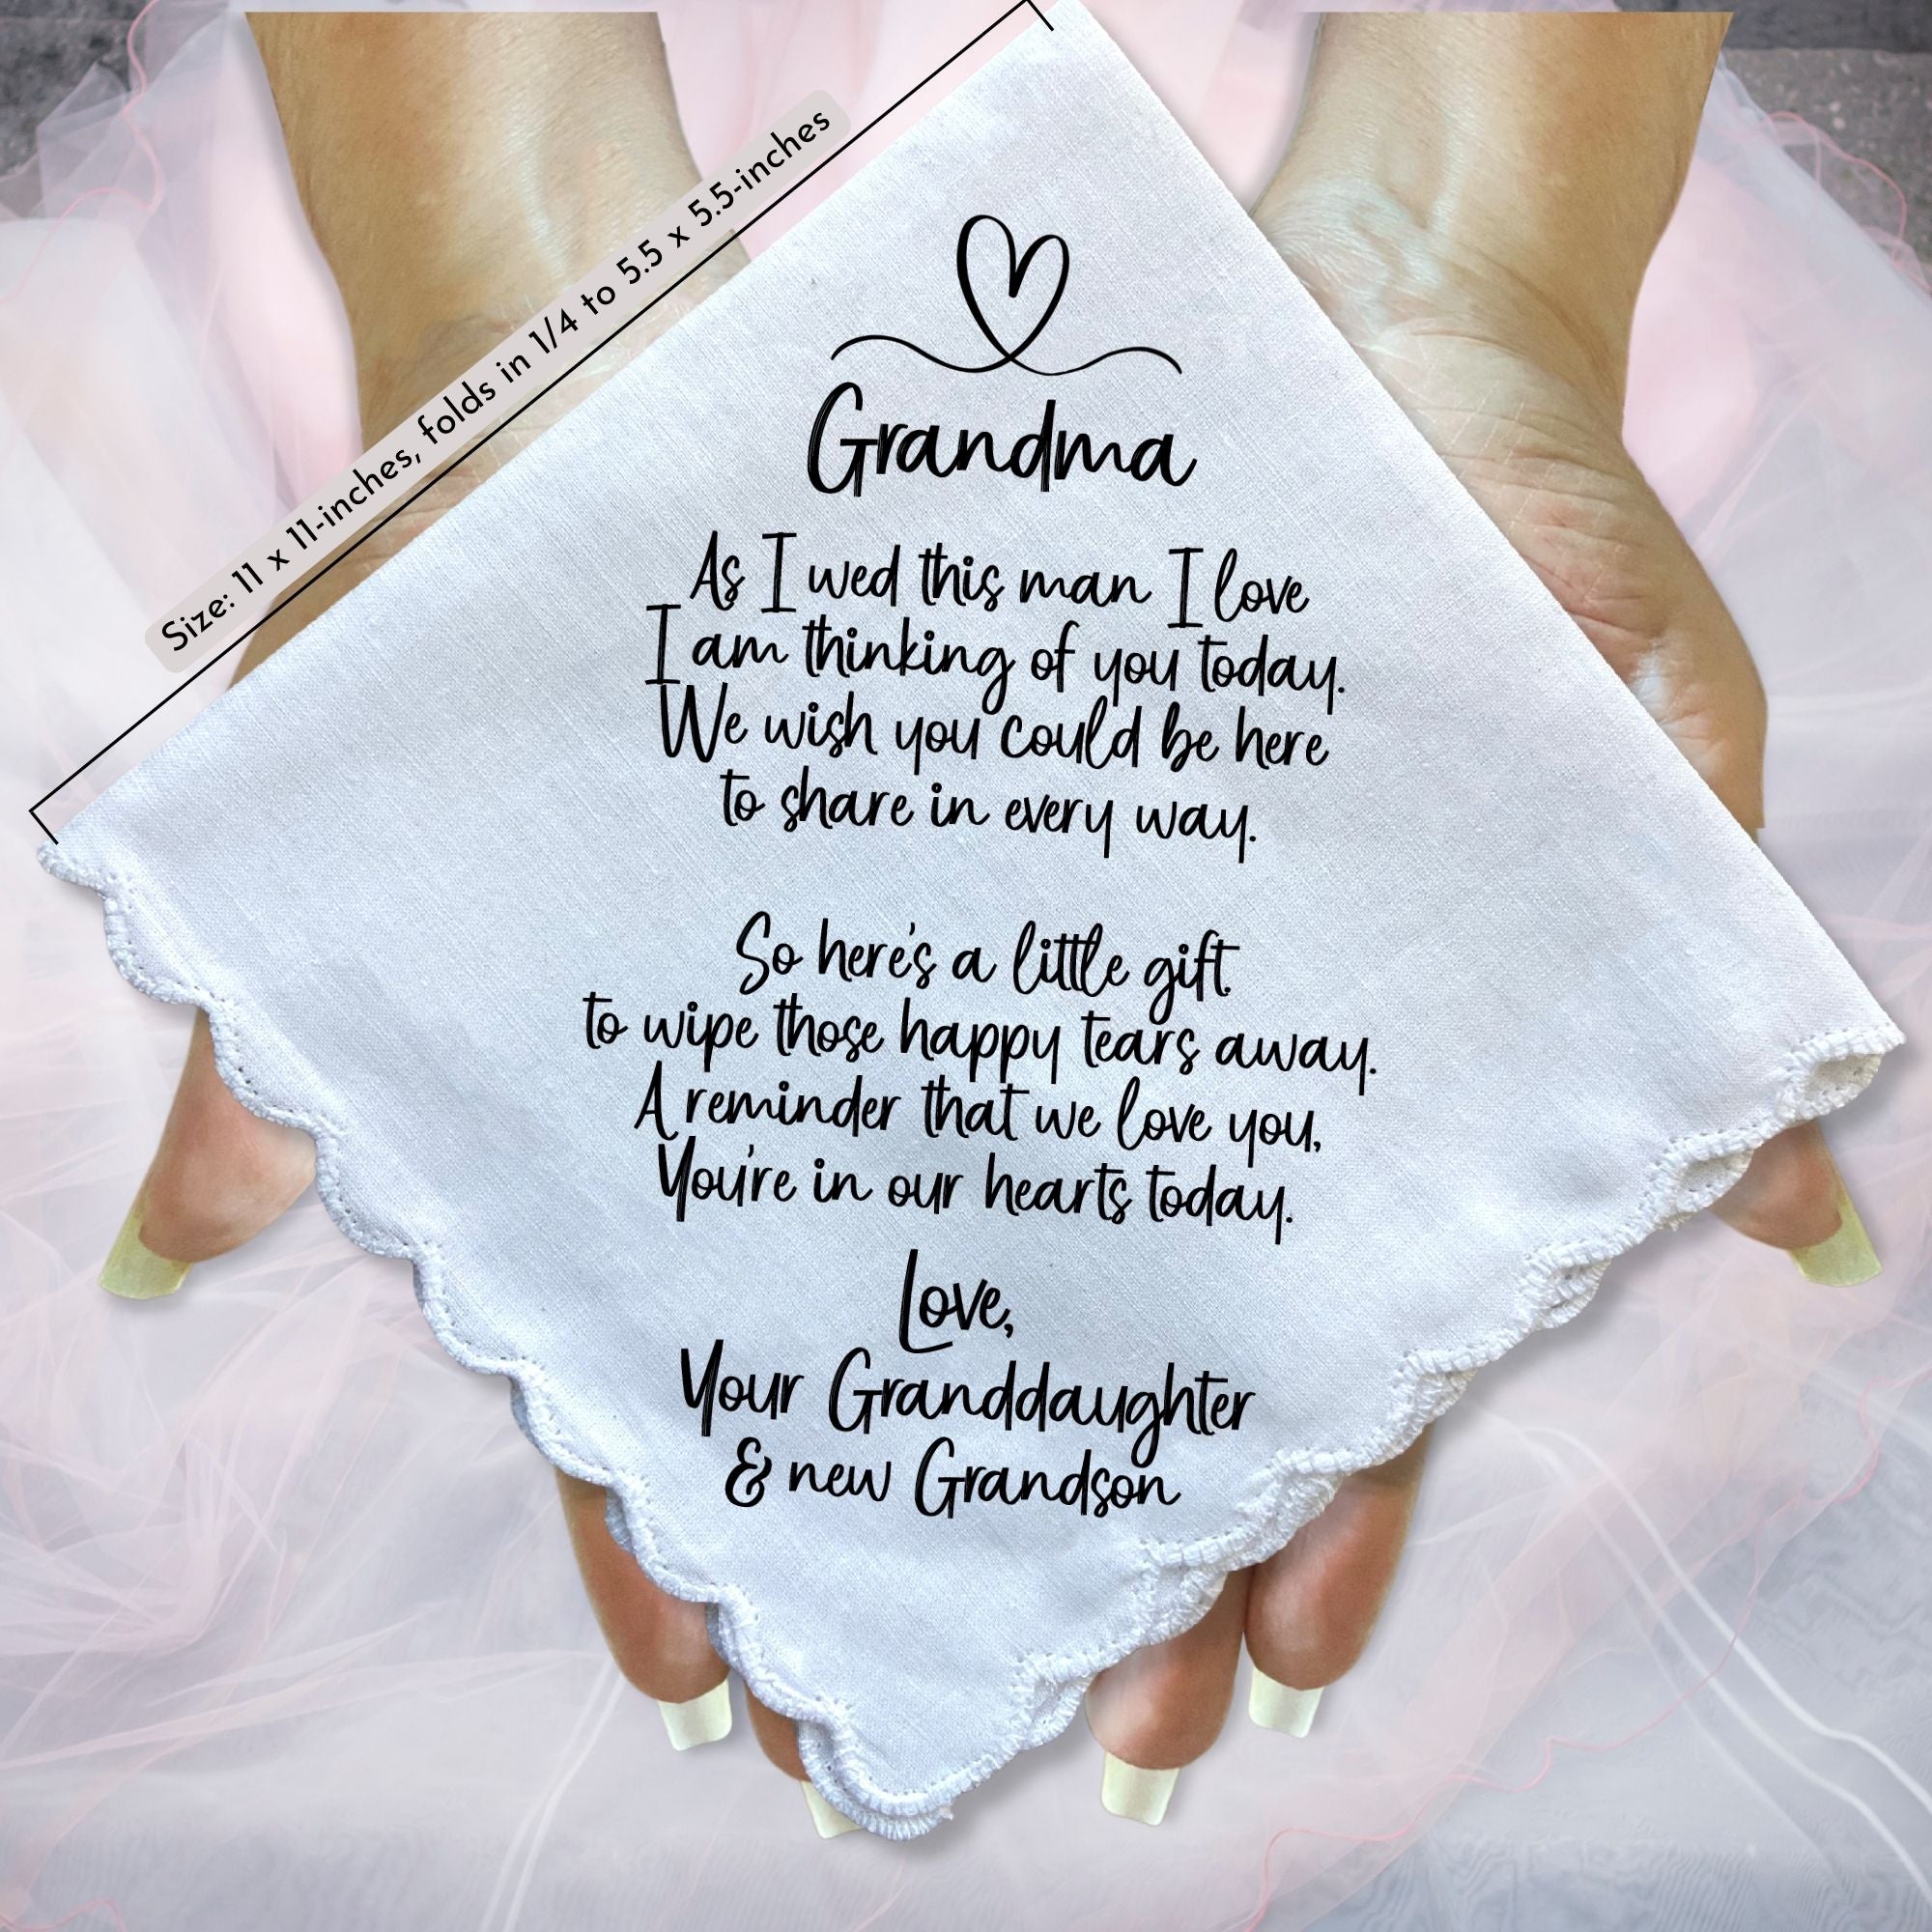 Size: 11 x 11-inches, folds in 1/4 to 5.5 x 5.5-inches
Grandma
As I wed this man I love
I am thinking of you today.
We wish you could be here
to share in every way.
So here's a little gift
to wipe those happy tears away.
A reminder that we love you,
You're in our hearts today.
Love,
Your Granddaughter
& new Grandson